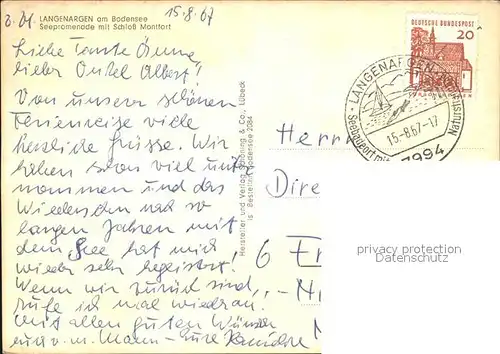 15.8.67
LANGENARGEN am Bodensee
Seepromenade mit Schloß Montfort
DEUTSCHE BUNDESPOST
20
LANGENARGEN
15.-8.67.-17
7994
Liebe Tante Änne,
lieber Onkel Albert!
Von unserer schönen
Ferienreise viele
herzliche Grüsse. Wir
haben schon viel unter-
nommen und das
Wiedersehn nach so
langen Jahren mit
dem See hat mich
wieder sehr begeistert!
Wenn wir zurück sind,
rufe ich mal wieder an.
Mit allen guten Wünschen
Mann - Eure
Hersteller und Verlag: Schöning & Co., Lübeck
Bodensee 2084
Herrn
Dire
6
privacy protection
Datenschutz